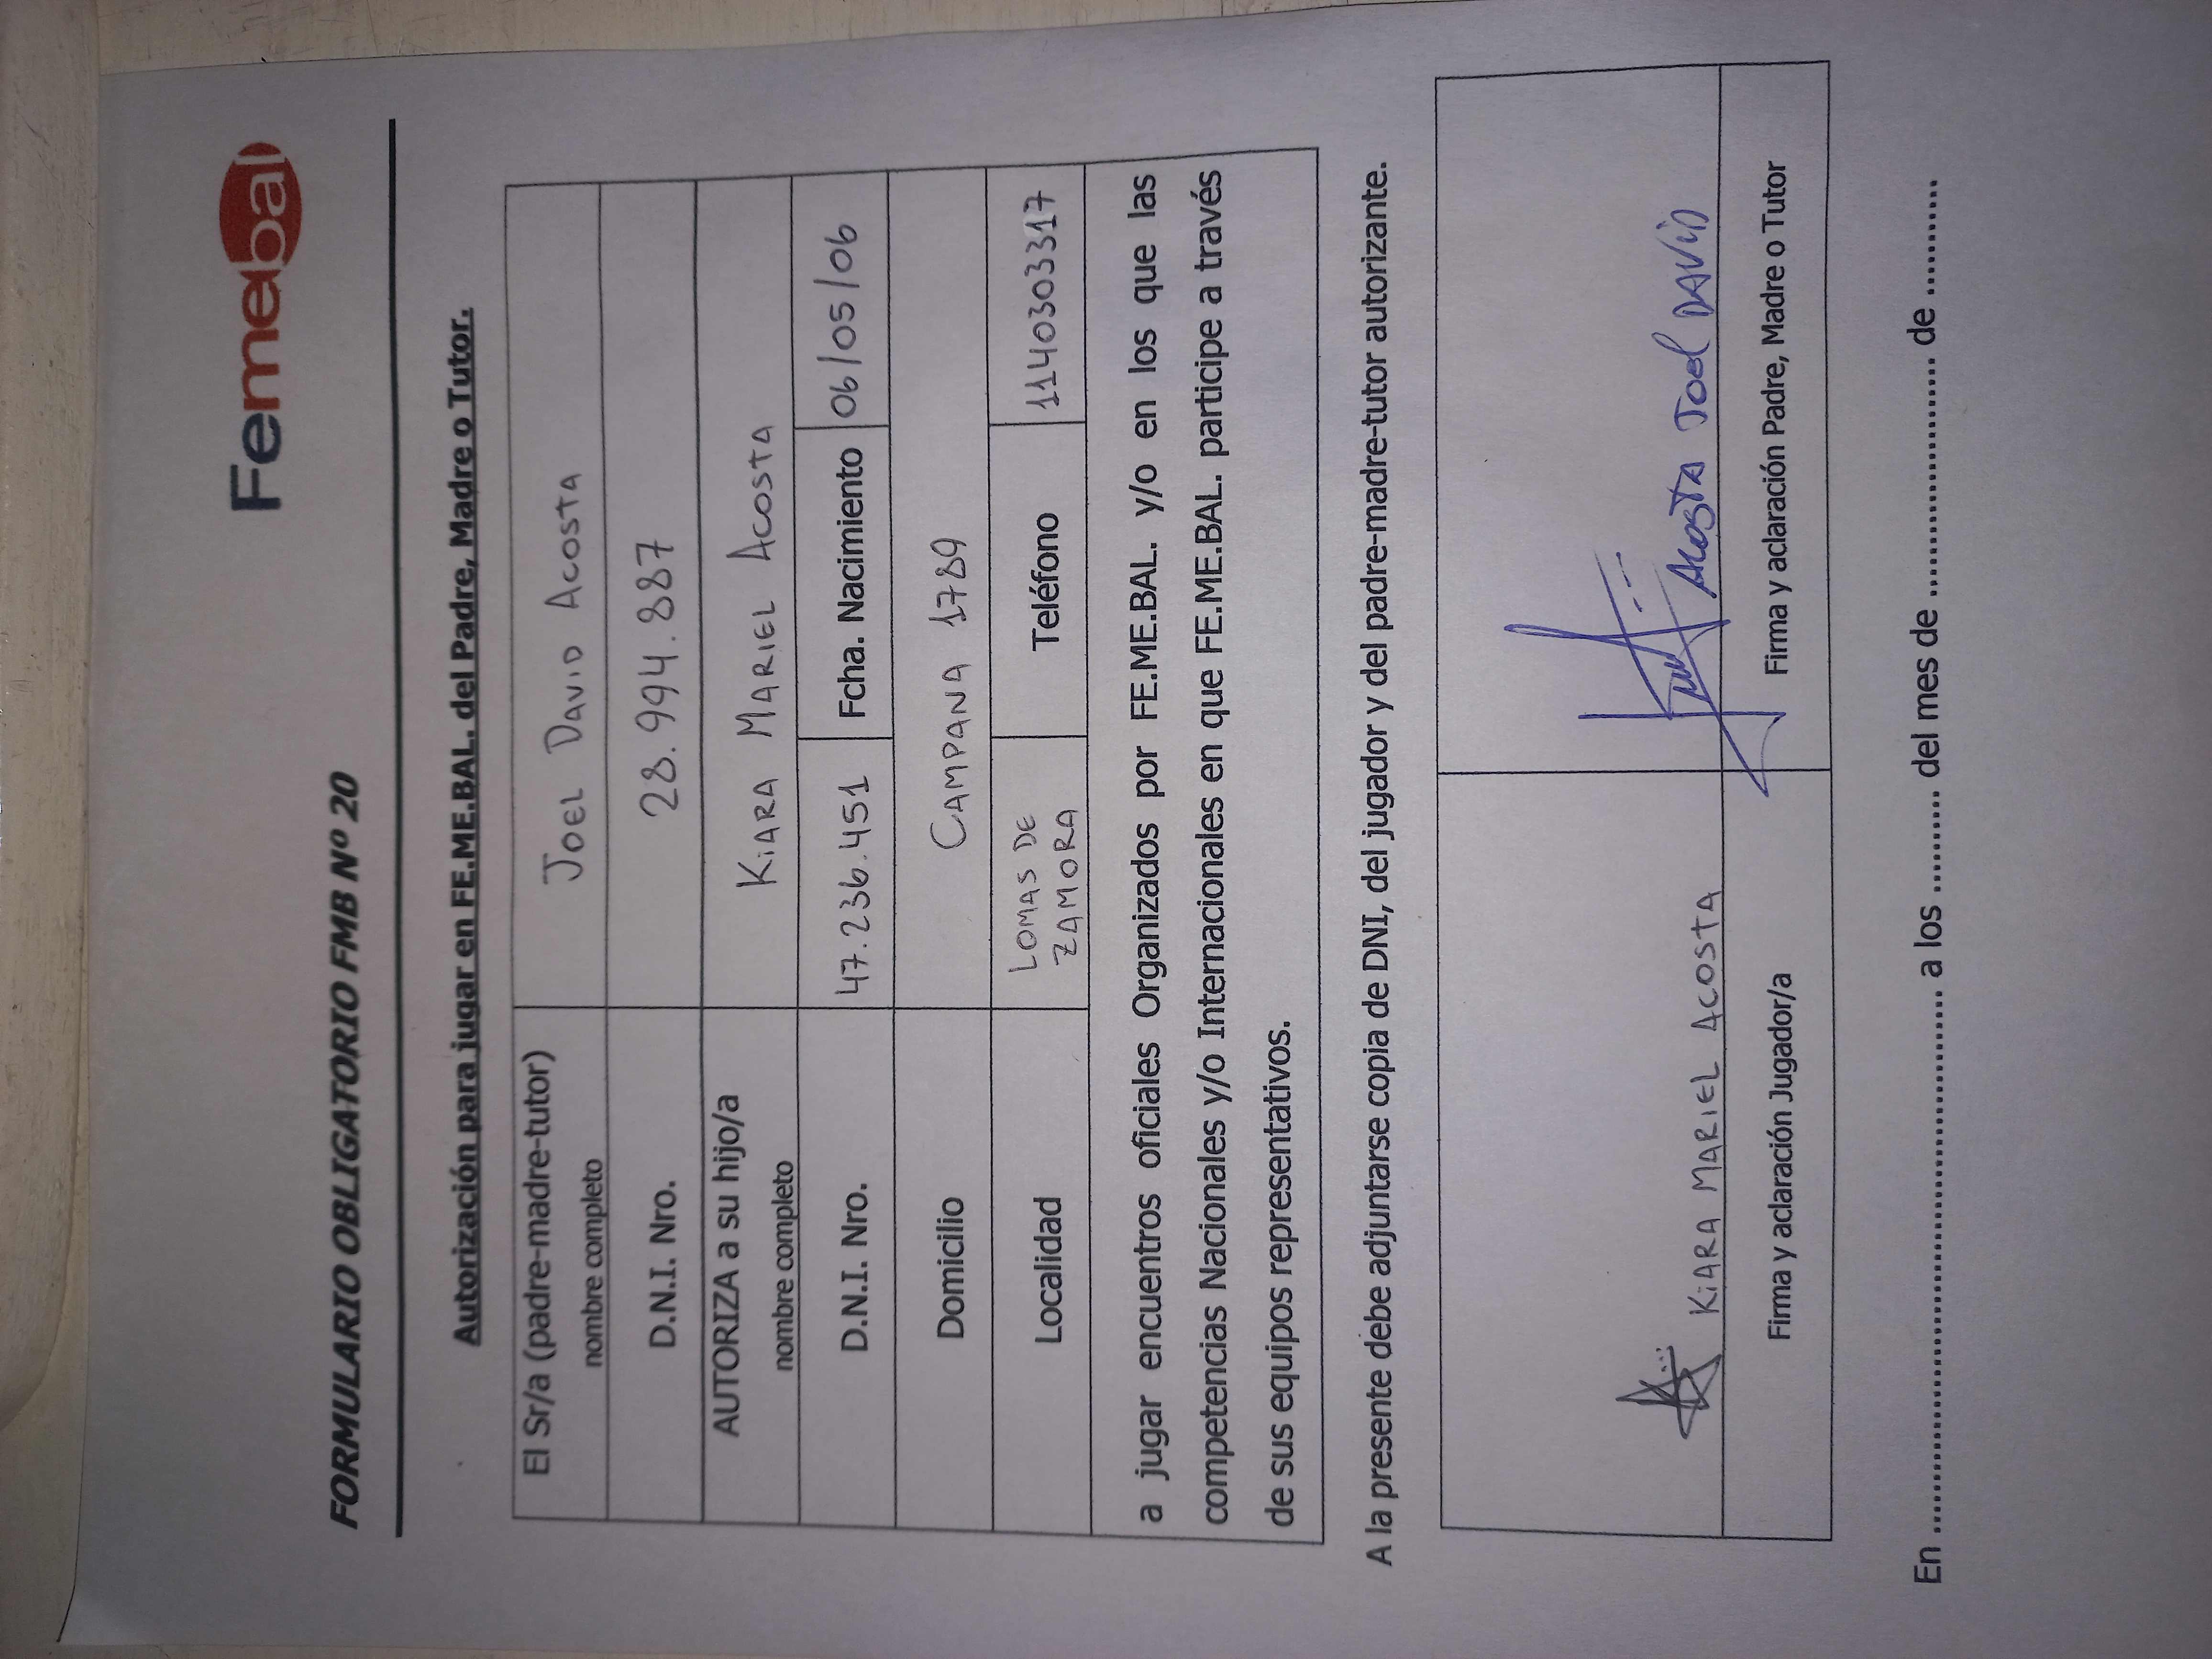 Femebal
FORMULARIO OBLIGATORIO FMB Nº 20
Autorización para jugar en FE.ME.BAL. del Padre, Madre o Tutor.
El Sr/a (padre-madre-tutor)
nombre completo
JOEL DAVID ACOSTA
D.N.I. Nro.
28.994.887
AUTORIZA a su hijo/a
nombre completo
KiARA MARIEL ACOSTA
D.N.I. Nro.
47.236.451
Fcha. Nacimiento
06/05/06
Domicilio
CAMPANA 1789
Localidad
LOMAS DE
ZAMORA
Teléfono
1140303317
a jugar encuentros oficiales Organizados por FE.ME.BAL. y/o en los que las
competencias Nacionales y/o Internacionales en que FE.ME.BAL. participe a través
de sus equipos representativos.
A la presente debe adjuntarse copia de DNI, del jugador y del padre-madre-tutor autorizante.
KiARA MARIEL ACOSTA
Firma y aclaración Jugador/a
ACOSTA Joel DAViD
Firma y aclaración Padre, Madre o Tutor
En ........................................................ a los ......... del mes de ........................... de ..........